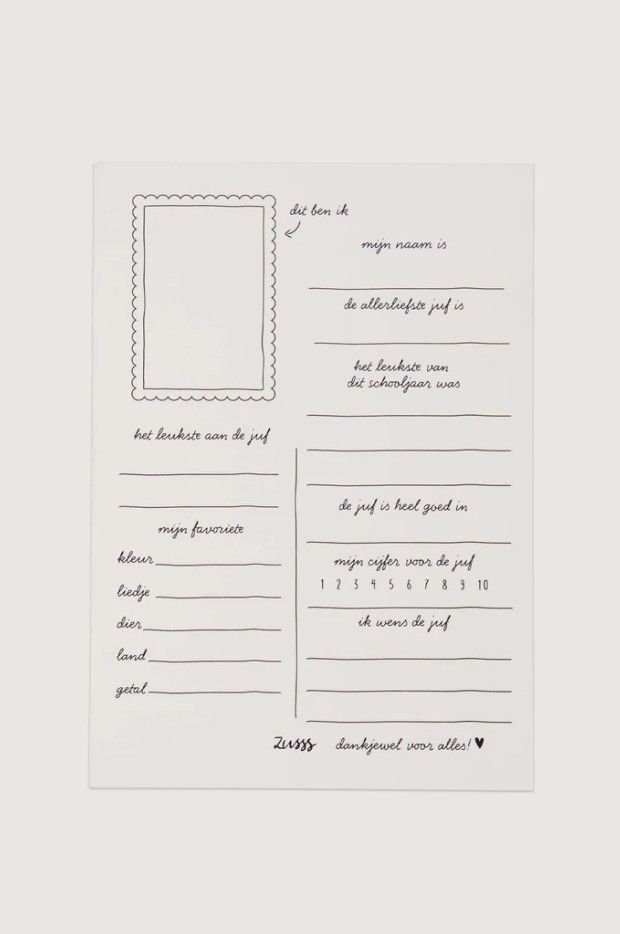 dit ben ik
mijn naam is
de allerliefste juf is
het leukste van
dit schooljaar was
het leukste aan de juf
mijn favoriete
kleur
liedje
dier
land
getal
de juf is heel goed in
mijn cijfer voor de juf
1 2 3 4 5 6 7 8 9 10
ik wens de juf
zusss dankjewel voor alles! ♥